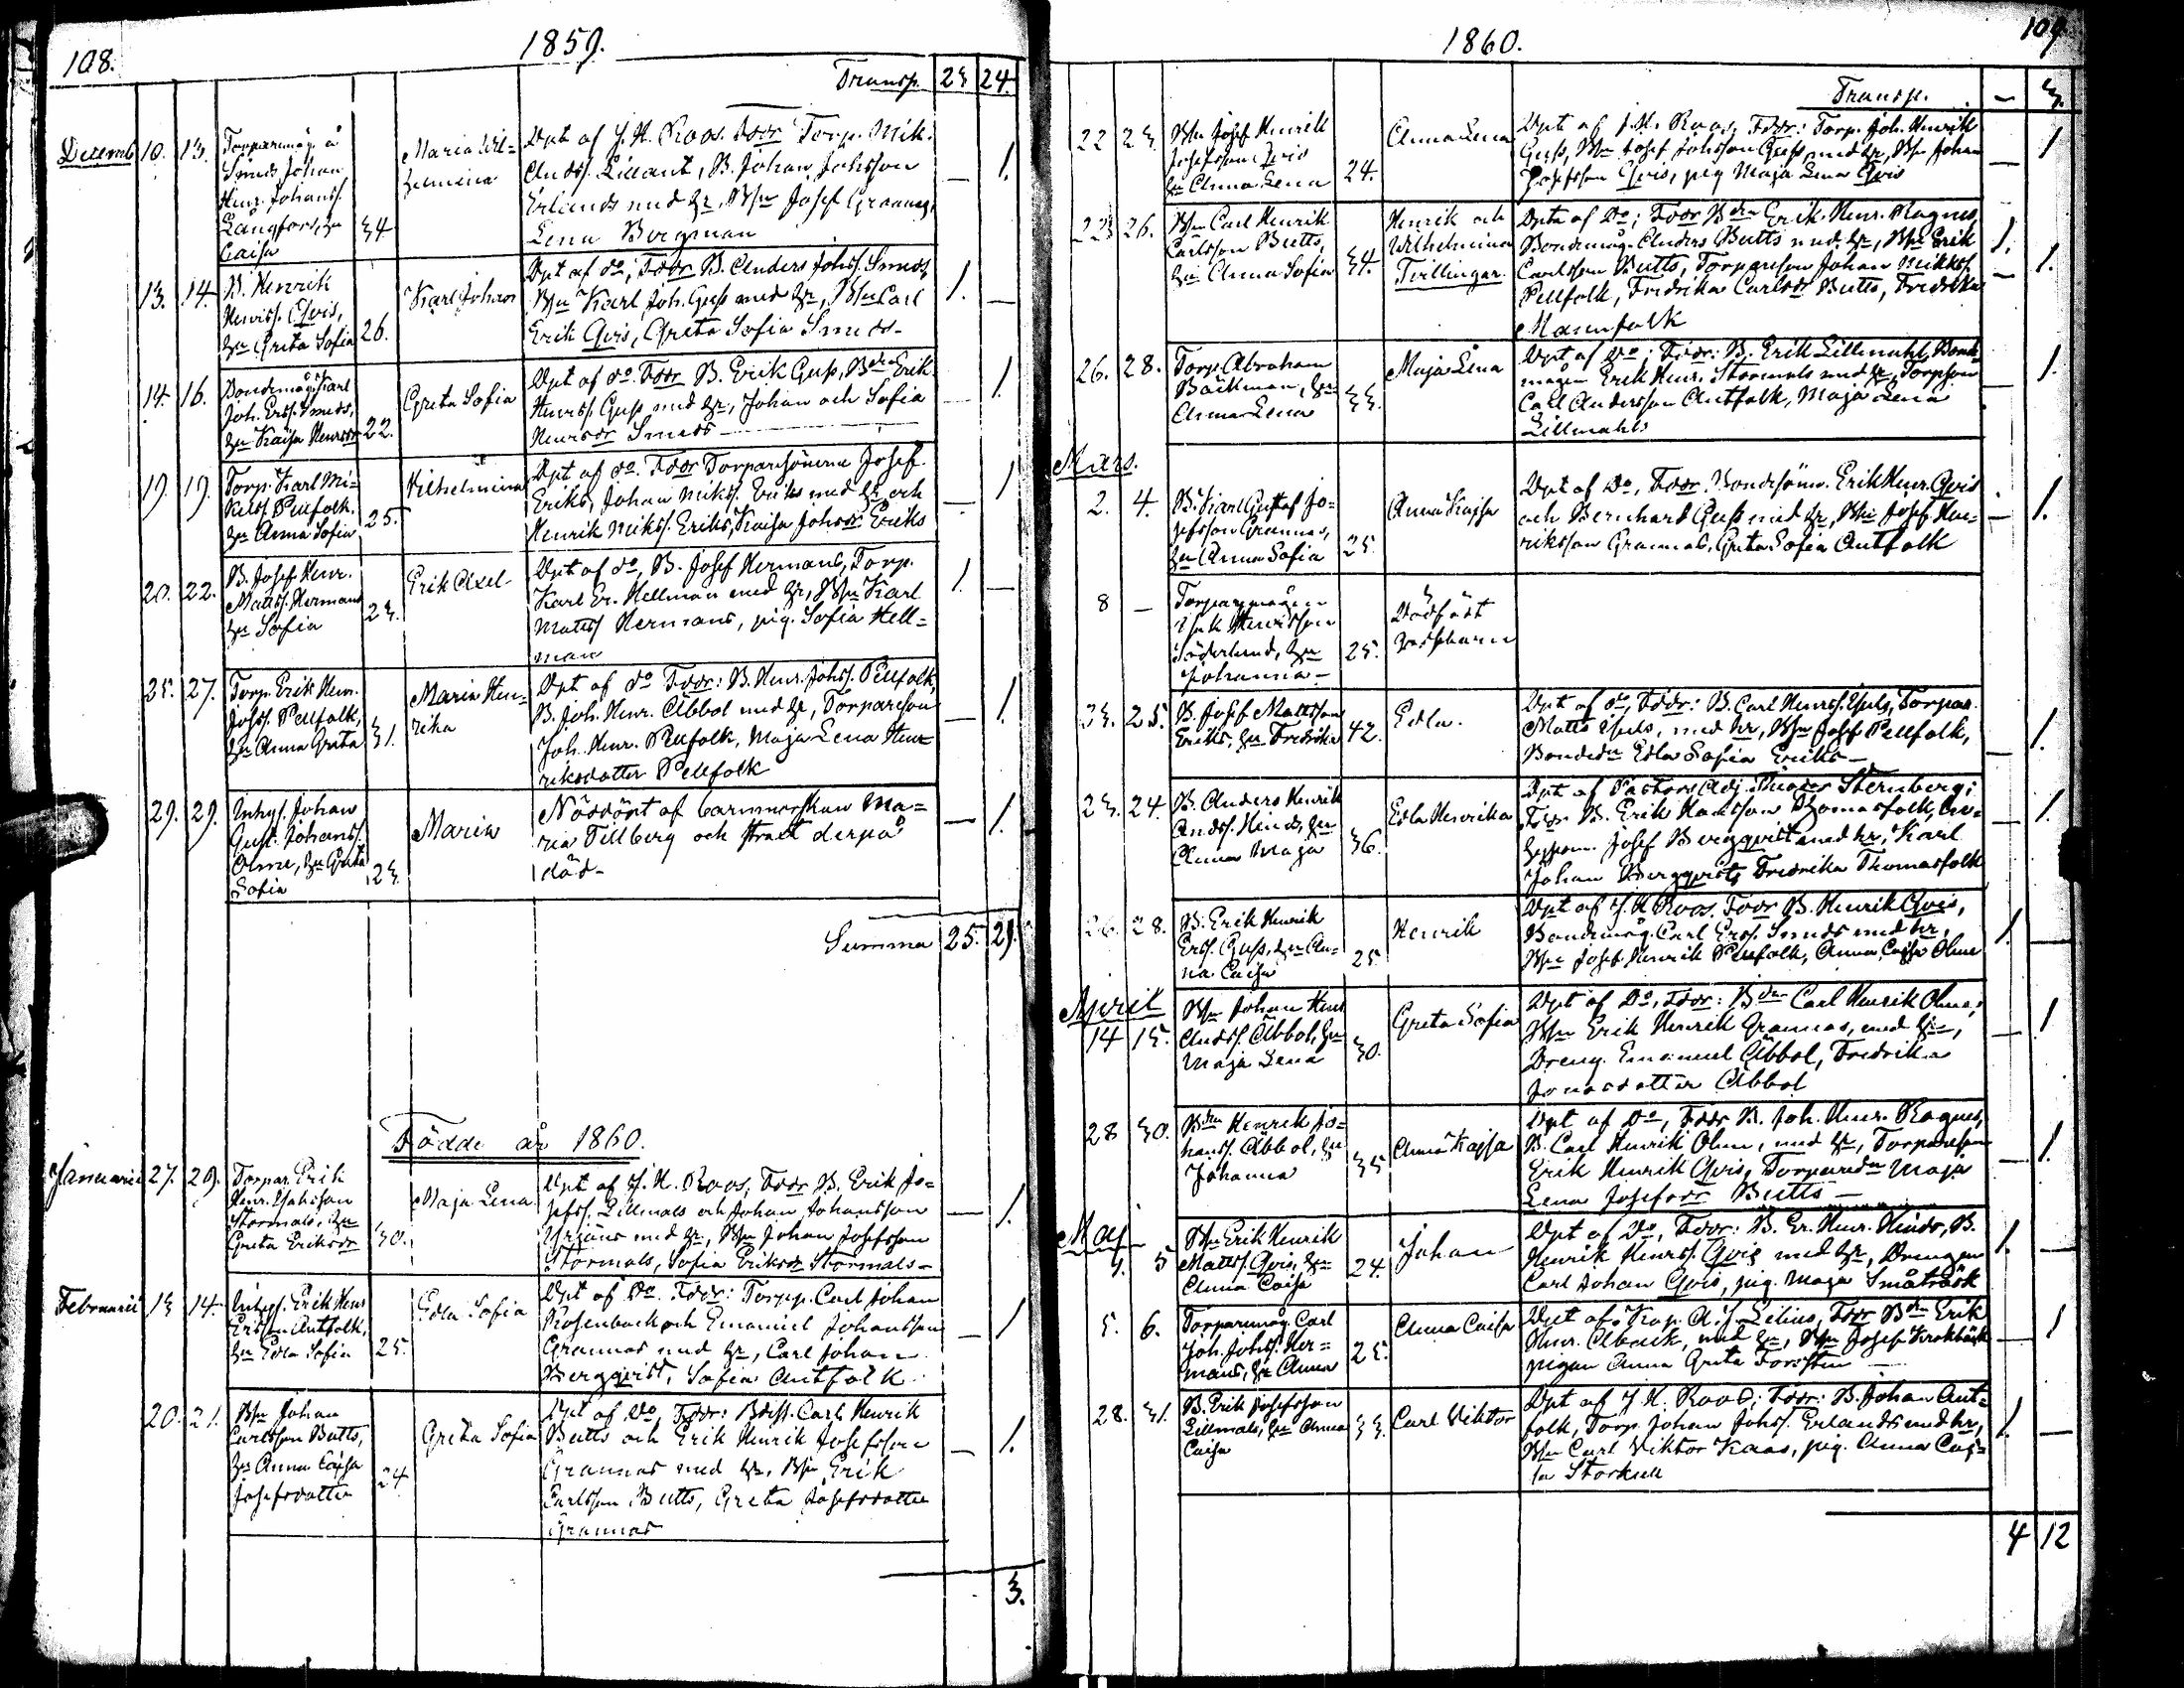 108.
1859.
Transp. 23 24.
Decemb. 10. 13. Torparemåg. å
Smeds Johan
Henr. Johanss.
Långfors, hu
Caisa 34
Maria Wil=
helmina
Dpt af J. H. Roos. Fddr Torp. Mik.
Anderss. Lillant, B. Johan Johsson
Erlands med hr, Bsn Josef Grannas,
Lena Bergman
— 1.
13. 14. B. Henrik
Henrss. Qvis,
hu Greta Sofia 26.
Karl Johan
Dpt af do; Fddr B. Anders Johss. Smeds
Bn Karl Joh. Guss med hr, Bsn Carl
Erik Qvis, Greta Sofia Smeds-
1. —
14. 16. Bondemåg. Karl
Joh. Erss. Smeds,
hu Kaisa Henrsdr 22.
Greta Sofia
Dpt af do. Fddr B. Erik Guss, Bdn Erik
Henrss. Guss med hr, Johan och Sofia
Henrsdr Smeds
— 1.
19. 19. Torp. Karl Mi=
kelss. Pellfolk.
hu Anna Sofia 25.
Wilhelmina
Dpt af do. Fddr Torparesönerne Josef
Eriks, Johan Mikss. Eriks med hr och
Henrik Mikss. Eriks, Kaisa Johsdr Eriks
— 1
20. 22. B. Josef Henr.
Mattss. Hermans
hu Sofia 23.
Erik Axel
Dpt af do, B. Josef Hermans, Torp.
Karl Er. Hellman med hr, Bsn Karl
Mattss. Hermans, pig. Sofia Hell=
man
1. —
25. 27. Torp. Erik Henr.
Johss. Pellfolk,
hu Anna Greta 31.
Maria Hen=
rika
Dpt af do Fddr: B. Henr. Johss. Pellfolk,
B. Joh. Henr. Åbbol med hr, Torpareson
Joh. Henr. Pellfolk, Maja Lena Hen=
riksdotter Pellfolk
— 1.
29. 29. Inhys. Johan
Gust. Johanss.
Olme, hu Greta
Sofia 23.
Maria
Nöddöpt af barnmorskan Ma=
ria Tillberg och strax derpå
död-
— 1.
Summa 25. 29.
Födde år 1860.
Januarii 27. 29. Torpar. Erik
Henr. Isaksson
Stormals, hu
Greta Eriksdr 30.
Maja Lena
Dpt af J. H. Roos, Fddr B. Erik Jo=
sefss. Lillmals och Johan Johansson
Yrjäns med hr, Bsn Johan Josefsson
Stormals, Sofia Eriksdr Stormals-
— 1.
Februarii 13 14. Inhys. Erik Henr
Ersson Antfolk,
hu Edla Sofia 25.
Edla Sofia
Dpt af Do. Fddr: Torpp. Carl Johan
Rosenback och Emanuel Johansson
Grannas med hr, Carl Johan
Bergqvist, Sofia Antfolk.
— 1
20. 21. Bsn Johan
Carlsson Butts,
hu Anna Caisa
Josefsdotter 24
Greta Sofia
Dpt af Do, Fddr: Carl Henrik
Butts och Erik Henrik Josefsson
Grannas med hr, Bsn Erik
Carlsson Butts, Greta Josefsdotter
Grannas
— 1.
3.
1860.
109.
Transp. — 3.
22 23. Bsn Josef Henrik
Josefsson Qvis
hu Anna Lena 24.
Anna Lena
Dpt af J. H. Roos, Fddr: Torp. Joh. Henrik
Guss, Bsn Josef Johsson Guss med hr, Bsn Johan
Josefsson Qvis, pig Maja Lena Qvis
— 1
23 26. Bsn Carl Henrik
Carlsson Butts,
hu Anna Sofia 34.
Henrik och
Wilhelmina
Tvillingar.
Dpta af Do; Fddr Bdn Erik Henr. Ragnes,
Bondemåg. Anders Butts med hr, Bsn Erik
Carlsson Butts, Torpareson Johan Mikkss.
Pellfolk, Fredrika Carlsdr Butts, Fredrika
Masenfolk
1. 1.
26. 28. Torp Abraham
Bäckman, hu
Anna Lena 33.
Maja Lena
Dpt af Do; Fddr: B. Erik Lillmahl, Bonde=
mågen Erik Henr. Stormals med hr, Torpson
Carl Andersson Antfolk, Maja Lena
Lillmahls
— 1.
Mars.
2. 4. B. Karl Gustaf Jo=
sefsson Grannas,
hu Anna Sofia 25.
Anna Kajsa
Dpt af Do, Fddr. Bondsönr. Erik Henr. Qvis
och Bernhard Guss med hr, Bsn Josef Hen=
riksson Grannas, Greta Sofia Antfolk
— 1.
8 — Torparemågen
Isak Henriksson
Söderlund, hu
Johanna- 25.
Dödfödt
gossebarn
23. 25. B. Josef Mattsson
Eriks, hu Fredrika 42.
Edla.
Dpt af do, Fddr: B. Carl Henrss. Yuls, Torpar.
Matts Yuls, med hr, Bsn Josef Pellfolk,
Bondedn Edla Sofia Eriks-
— 1.
23. 24. B. Anders Henrik
Andss. Hinds, hu
Anna Maja 36.
Edla Henrika
Dpt af Pastors Adj. Theodor Sternberg;
Fddr B. Erik Thomasfolk, In=
hyssm. Josef Bergqvist med hr, Karl
Johan Bergqvist, Fredrika Thomasfolk
— 1.
26. 28. B. Erik Henrik
Erss. Guss, hu An=
na Caisa 25
Henrik
Dpt af J. H Roos. Fddr B. Henrik Qvis,
Bondemåg. Carl Erss. Smeds med hr,
Bsn Josef Henrik Pellfolk, Anna Caisa Olme
1. —
April
14 15. Bsn Johan Henr
Andss. Åbbol, hu
Maja Lena 30.
Greta Sofia
Dpt af Do, Fddr: Bdn Carl Henrik Olme,
Bsn Erik Henrik Grannas, med hr,
Dreng. Emanuel Åbbol, Fredrika
Jonasdotter Åbbol
— 1
28 30. Bdn Henrik Jo=
hanss. Åbbol, hu
Johanna 35
Anna Kajsa
Dpt af Do, Fddr B. Joh. Henr. Ragnes,
B. Carl Henrik Olme, med hr, Torpareson
Erik Henrik Qvis, Torparedn Maja
Lena Josefsdr Butts —
— 1.
Maj
4. 5 Bsn Erik Henrik
Mattss. Qvis, hu
Anna Caisa 24.
Johan
Dpt af Do, Fddr: B. Er. Henr. Hinds, B.
Henrik Henrss. Qvis med hr, Drengen
Carl Johan Qvis, pig. Maja Småträsk
1. —
5. 6. Torparemåg Carl
Joh. Johss. Her=
mans, hu Anna 25.
Anna Caisa
Dpt af Kap. A. J Lilius, Fddr Bdn Erik
Henr. Åbnik, med hr, Bsn Josef Krokbäck
pigan Anna Greta Forstén
— 1
28. 31. B. Erik Josefsson
Lillmals, hu Anna
Caisa 33.
Carl Viktor
Dpt af J. H. Roos; Fddr: B. Johan Ant=
folk, Torp. Johan Johss. Erlands med hr,
Bsn Carl Viktor Kaas, pig. Anna Caj=
sa Storkull
1. —
4 12